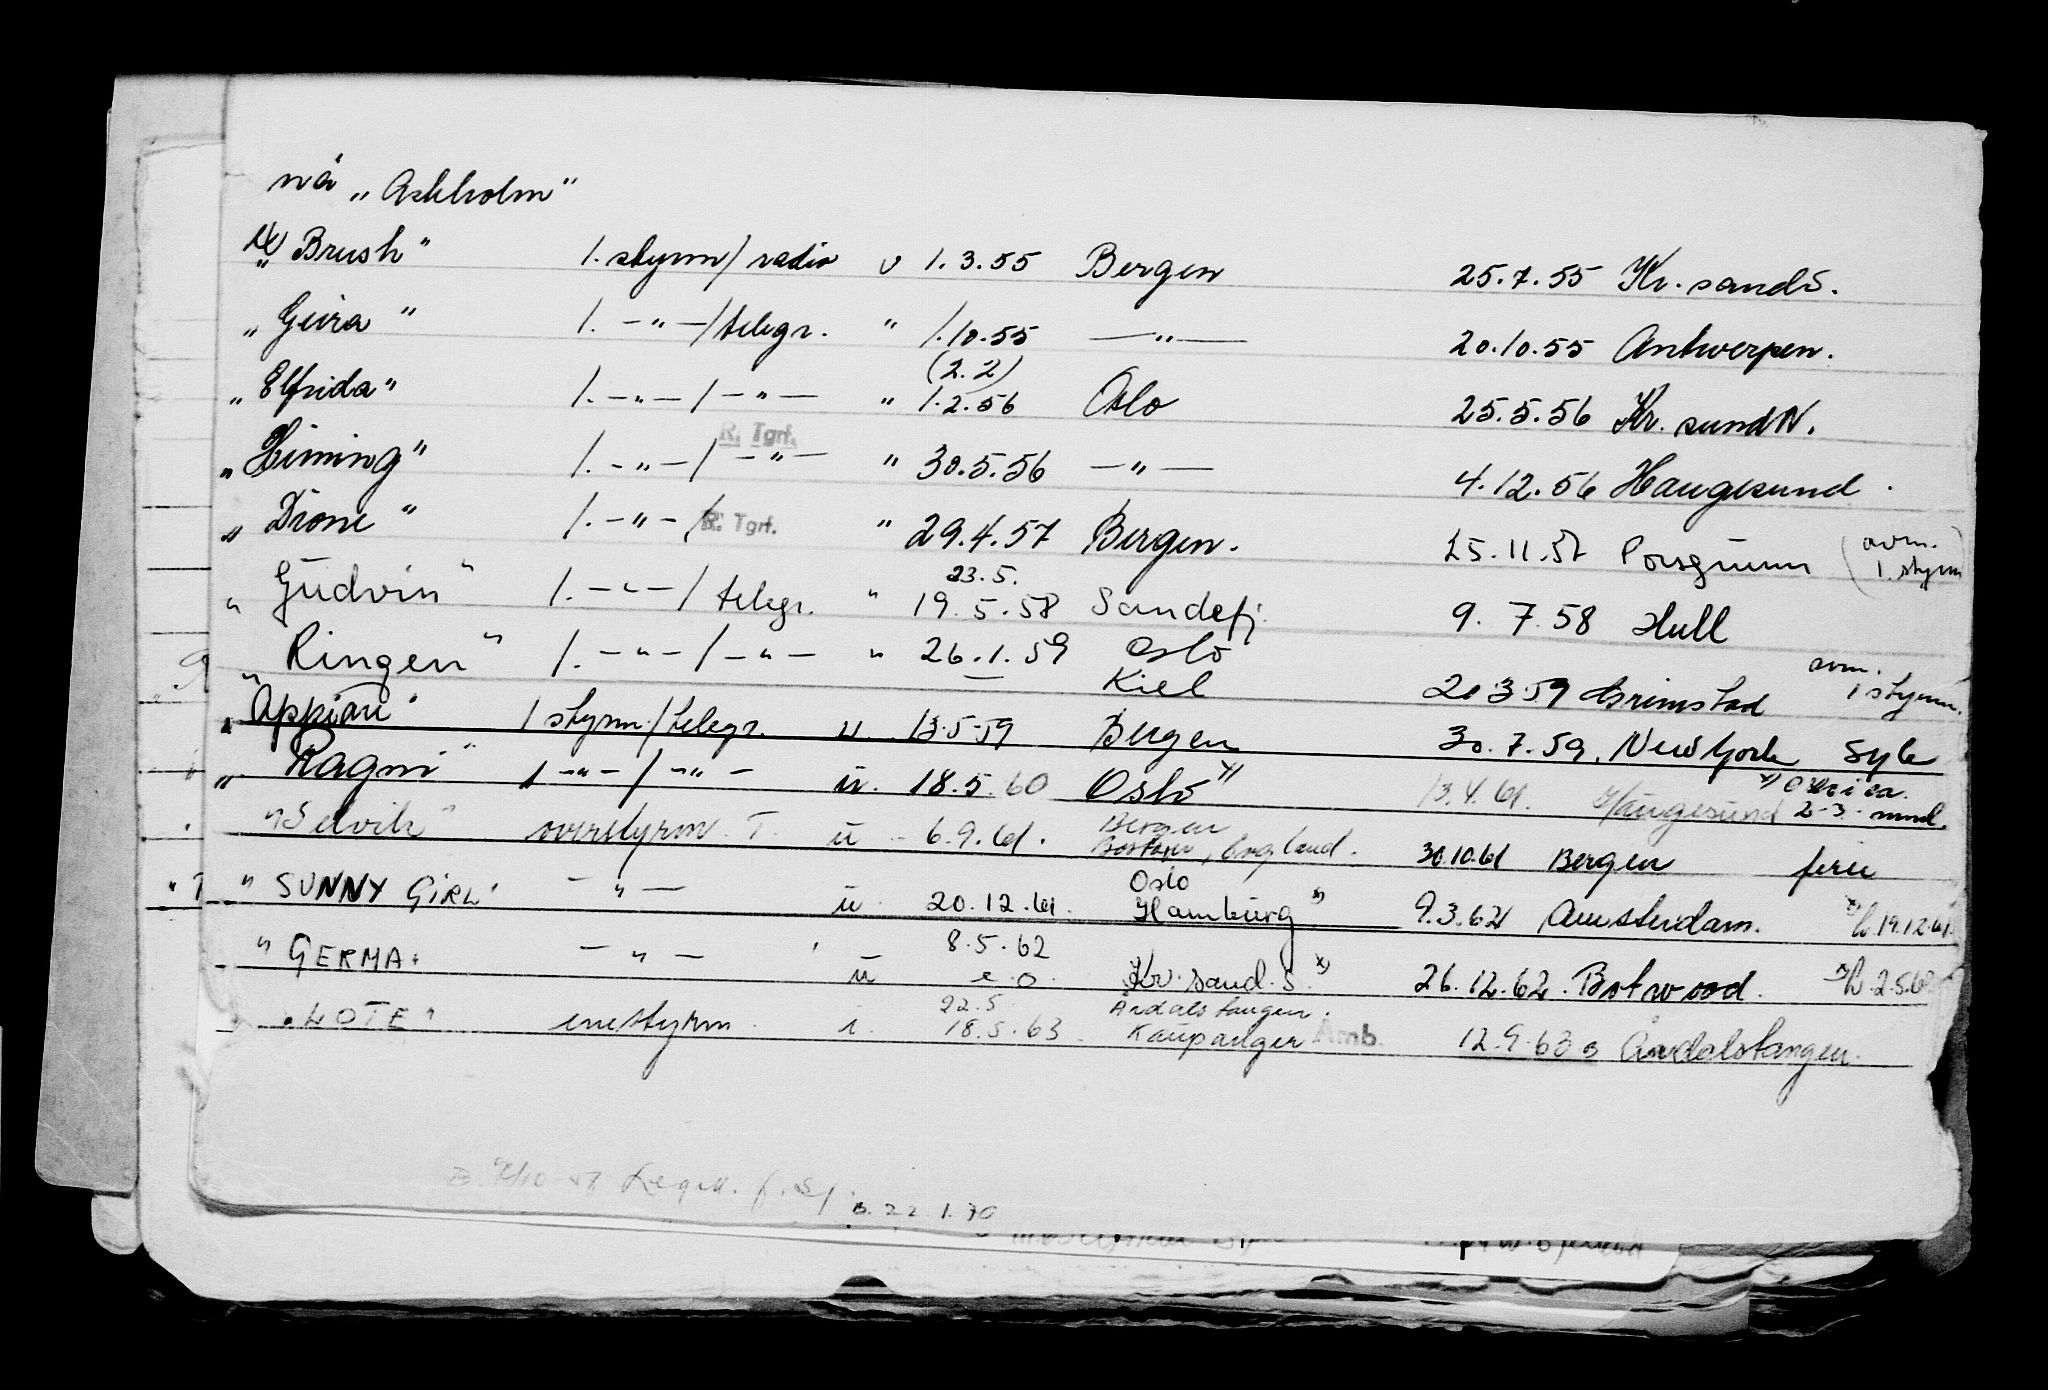 nå „Askholm"
„Brush" 1. styrm/radio u 1.3.55 Bergen 25.7.55 Kr. sand S.
„Geira" 1. —"—/telegr. " 1.10.55 —"— 20.10.55 Antwerpen.
(2.2)
„Elfrida" 1. —"—/—"— " 1.2.56 Oslo 25.5.56 Kr. sund N.
R. Tgrf.
„Heining" 1. —"—/—"— " 30.5.56 —"— 4.12.56 Haugesund.
„Dione" 1. —"—/R. Tgrf. " 29.4.57 Bergen. 25.11.57 Porsgrunn (avm. 1. styrm)
23.5.
„Gudvin" 1. —"—/telegr. " 19.5.58 Sandefj. 9.7.58 Hull
„Ringen" 1. —"—/—"— " 26.1.59 Oslo
Kiel 20.3.59 Grimstad avm. 1 styrm.
„Appian" 1 styrm./telegr. u. 13.5.59 Bergen 30.7.59. New York syk
„Ragni" 1 —"—/—"— u. 18.5.60 Oslo x) 13.4.61. Haugesund 2-3. mnd.
Bergen
"Selvik" overstyrm. T. u 6.9.61. Boston, England. 30.10.61 Bergen ferie
Oslo
"SUNNY GIRL" —"— u 20.12.61. Hamburg x) 9.3.62 Amsterdam. x) h. 19.12.61.
8.5.62
"GERMA" —"— u e.o. Kr. sand. S. x) 26.12.62. Botwood. x) h. 2.5.62
22.5 Årdalstangen.
"LOTE" enestyrm. i. 18.5.63. Kaupanger Amb. 12.9.63 Årdalstangen.
B. 22.1.70